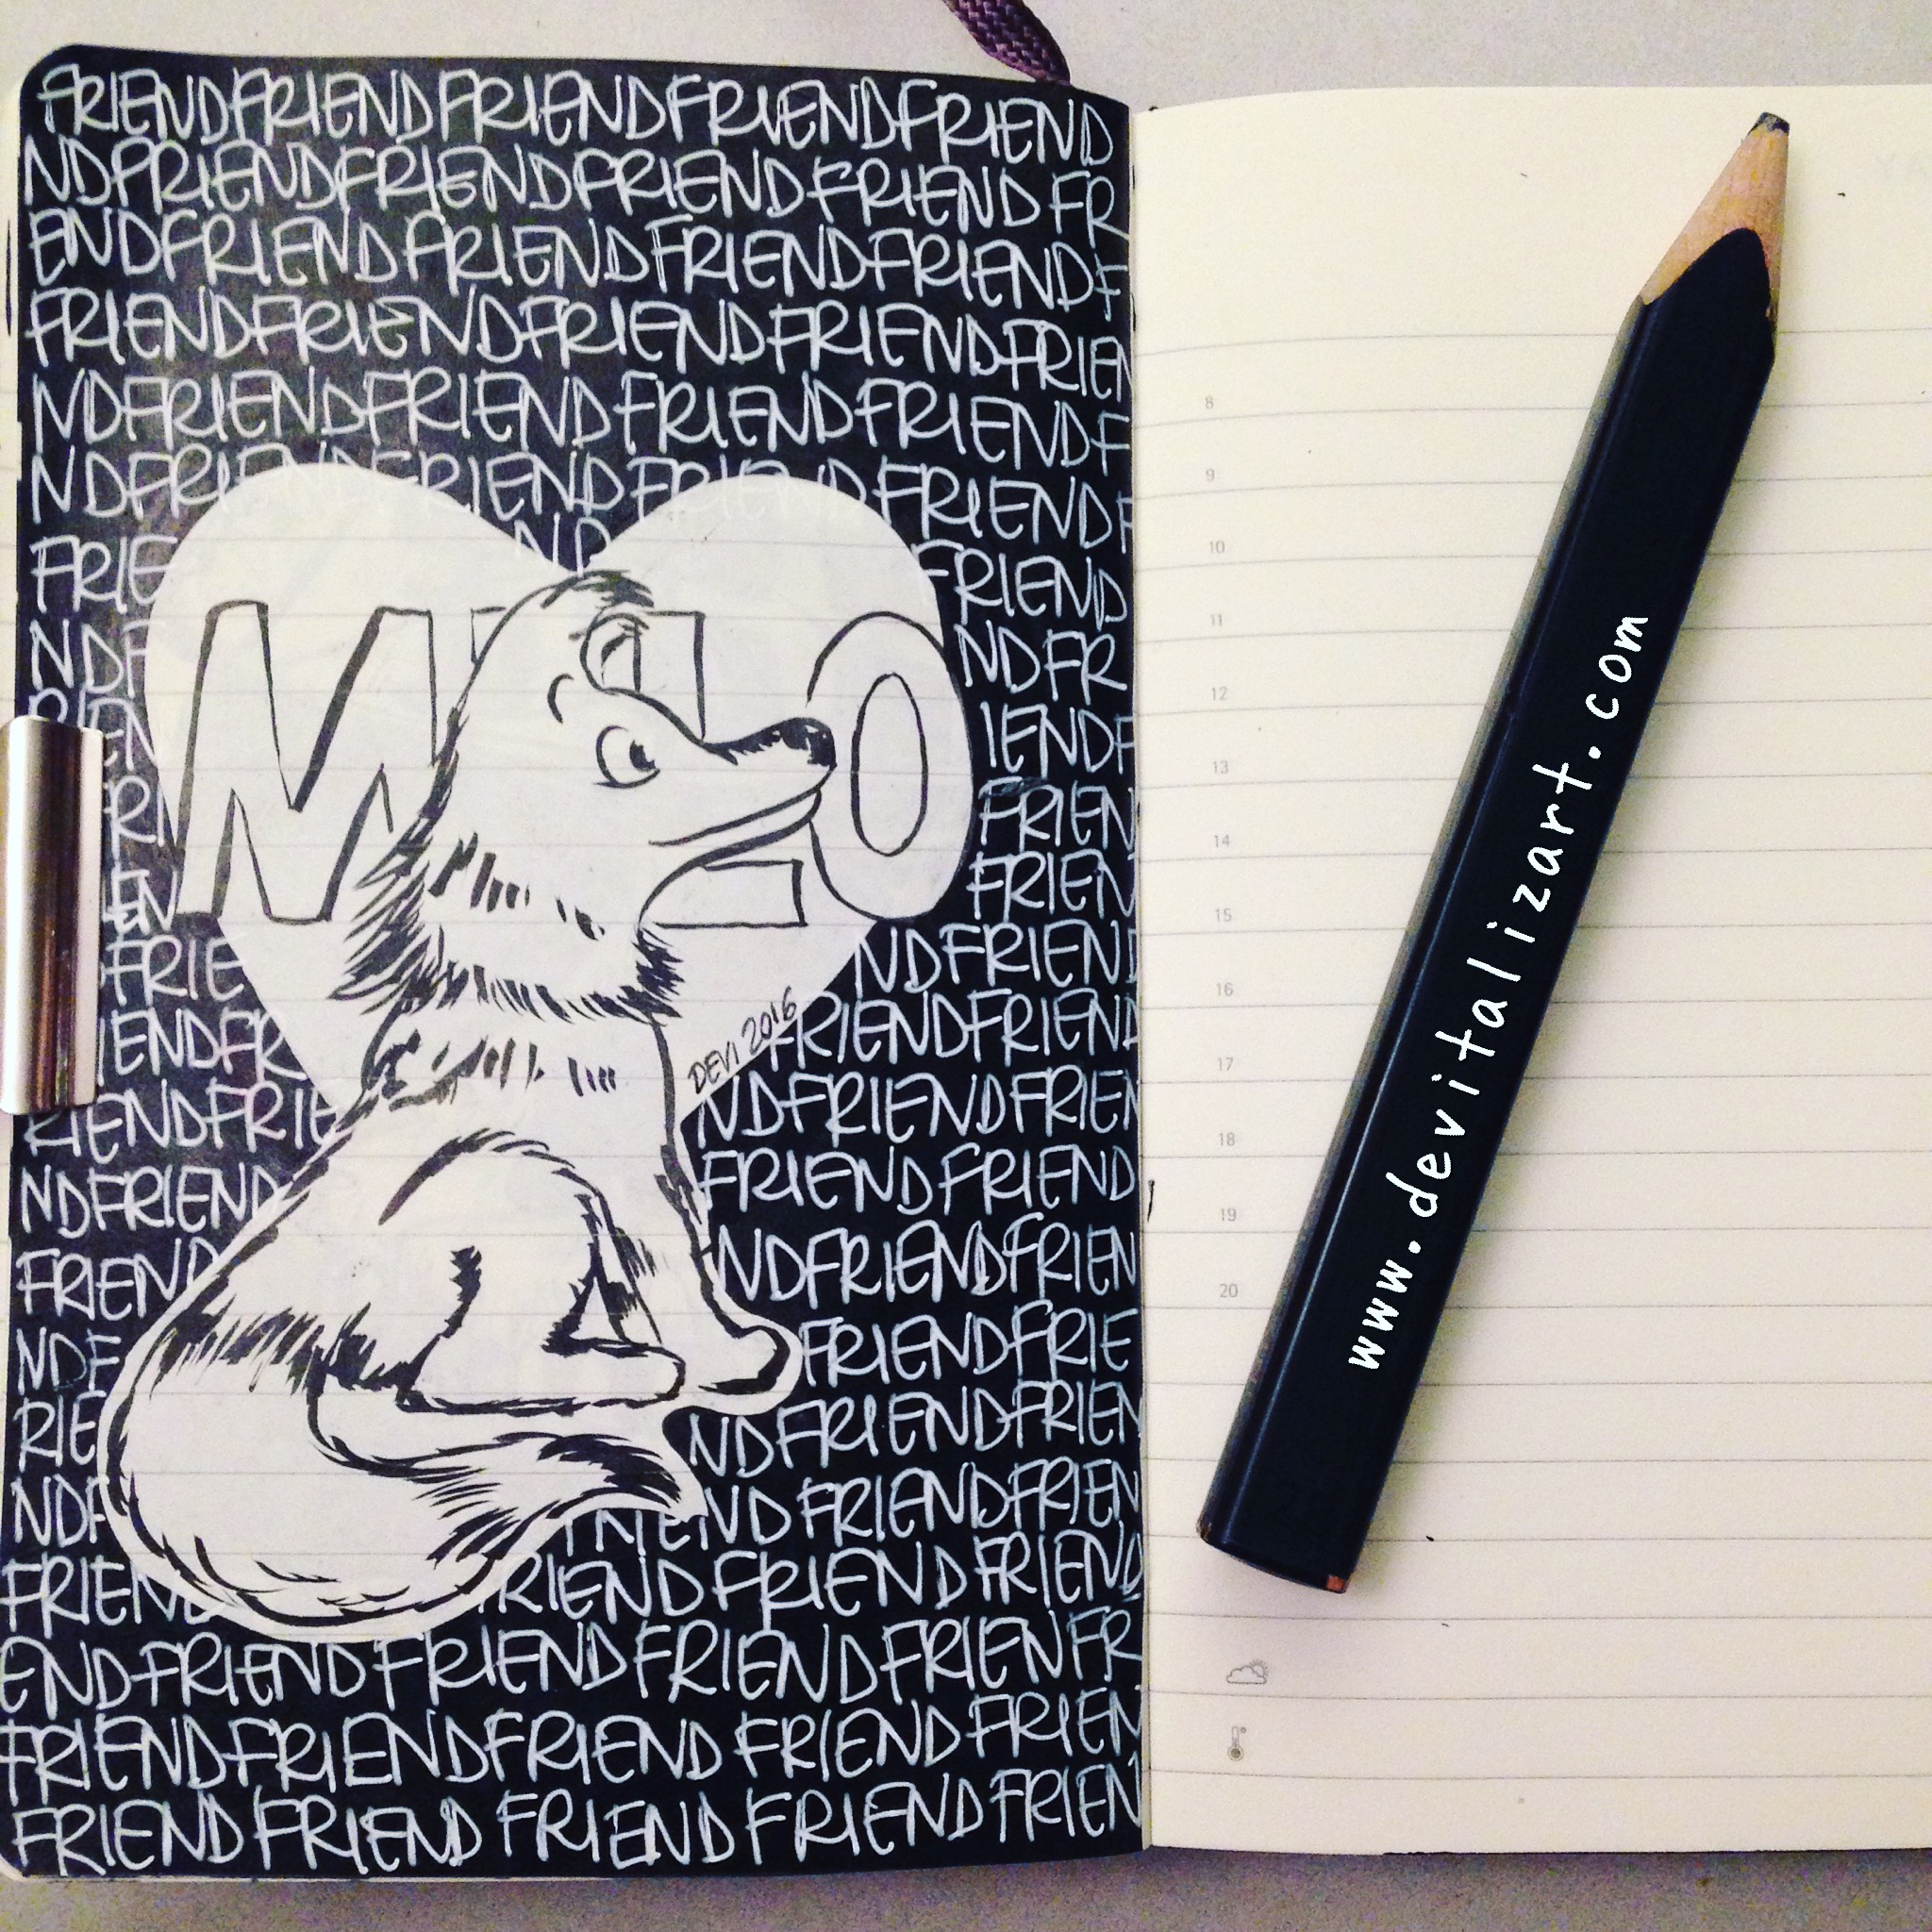 FRIENDFRIENDFRIENDFRIENDFRIEND
NDFRIENDFRIENDFRIENDFRIENDFR
ENDFRIENDFRIENDFRIENDFRIENDF
FRIENDFRIENDFRIENDFRIENDFRIEN
NDFRIENDFRIENDFRIENDFRIENDF
NDFRIENDFRIENDFRIENDFRIENDF
FRIE ND FRIEND
NDF NDFR
RIEN IENDF
RI FRIEN
EN FRIEN
FRIE NDFRIEND
IENDFR FRIENDFRIEND
RIENDFRIE NDFRIENDFRIEN
NDFRIEND FRIENDFRIEND
FRIEND NDFRIENDFRIEN
NDF FRIENDFRIE
RIE NDFRIENDFRIEN
NDF FRIENDFRIENDFRIEN
FRIEN RIENDFRIENDFRIEND
ENDFRIENDFRIENDFRIENDFRIENFR
FRIENDFRIENDFRIENDFRIENDFRIEN
FRIENDFRIENDFRIENDFRIENDFRIEN
MILO
DEVI 2016
8
9
10
11
12
13
14
15
16
17
18
19
20
www.devitalizart.com